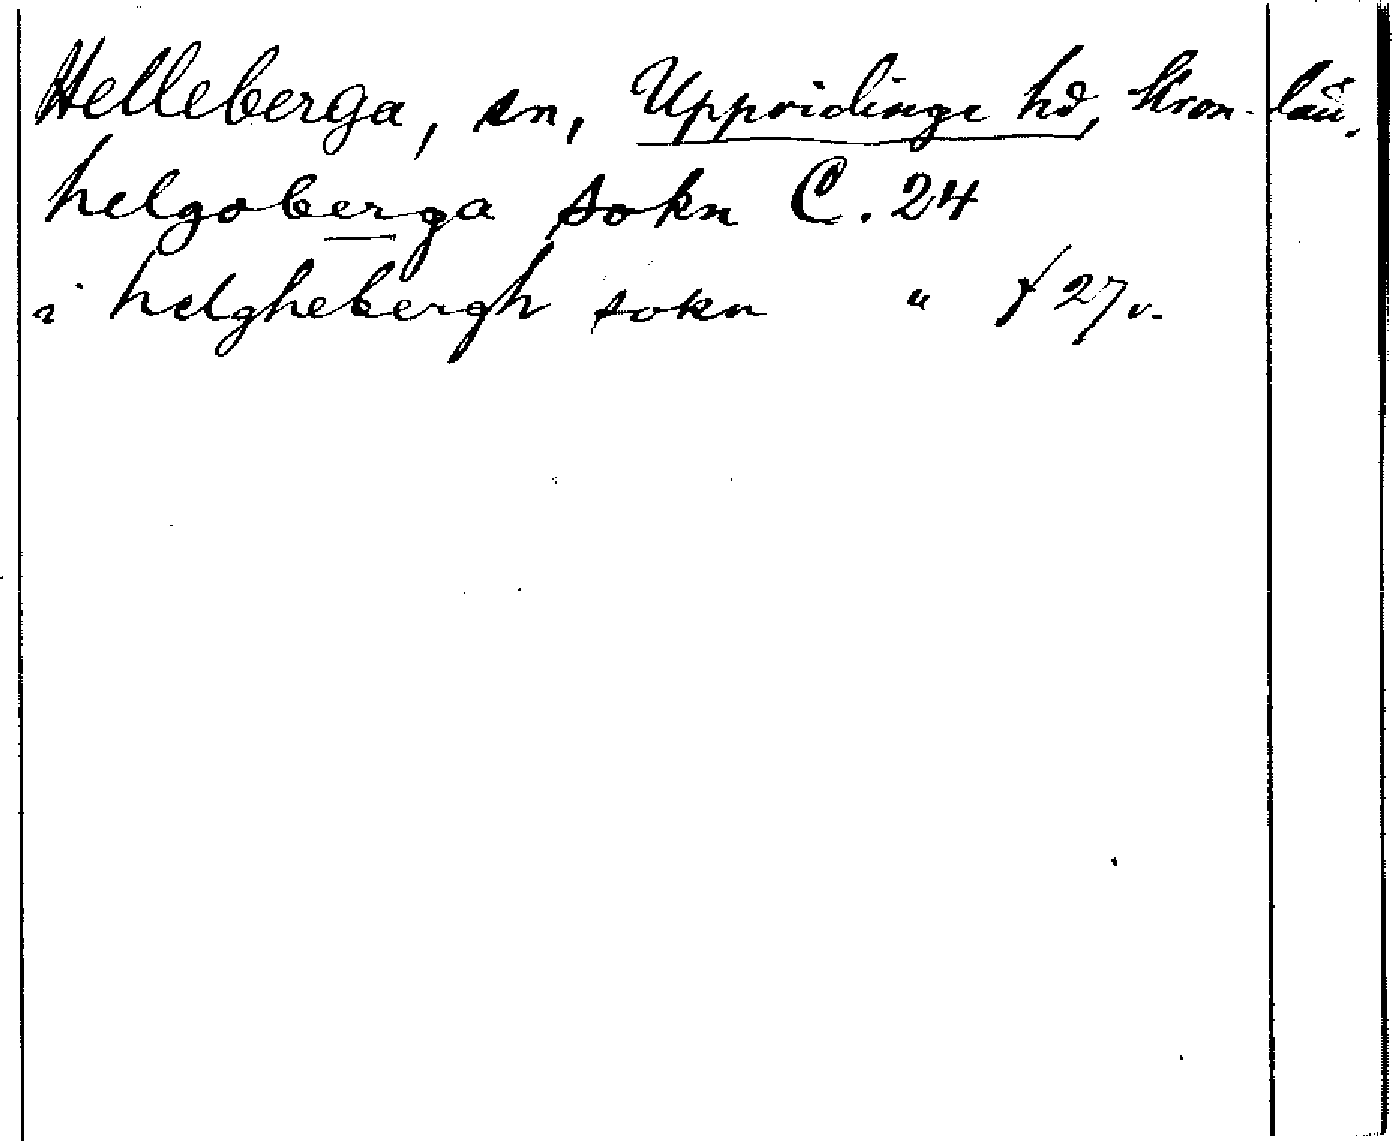 Helleberga, sn, Uppvidinge hd, Kron. län.
helgoberga sokn C. 24
i helghebergh sokn " f 27 v.